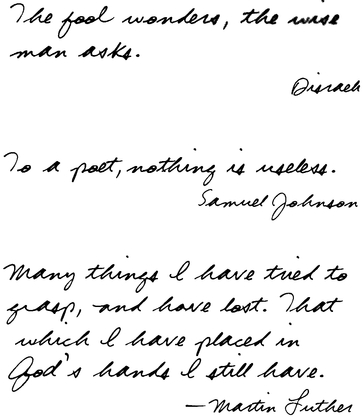 The fool wonders, the wise
man asks.
Disraeli
To a poet, nothing is useless.
Samuel Johnson
Many things I have tried to
grasp, and have lost. That
which I have placed in
God's hands I still have.
—Martin Luther